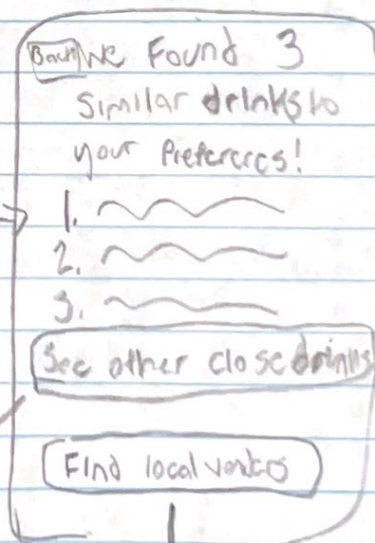 Back We Found 3
Similar drinks to
your Prefereces!
1.
2.
3.
See other close drinks
Find local vendors